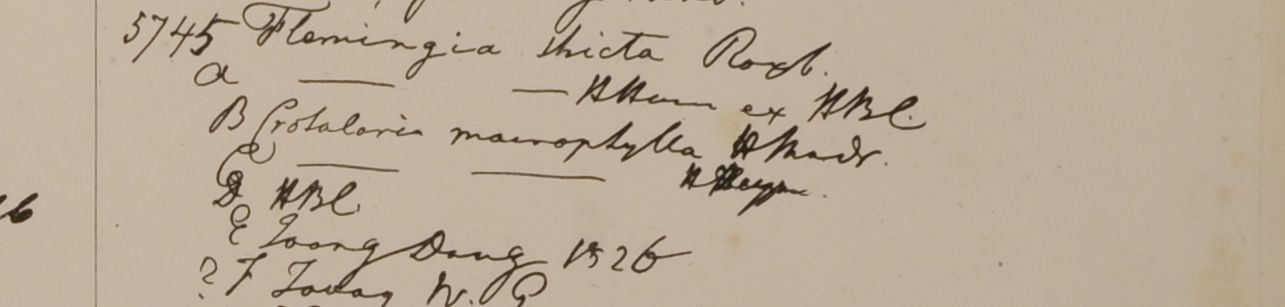 5745 Flemingia stricta Roxb.
a — — HHam ex HBC.
B Crotalaria macrophylla HMadr.
C — — HHeyne.
D HBC
E Toong Dong 1826
? F Tavoy W. G